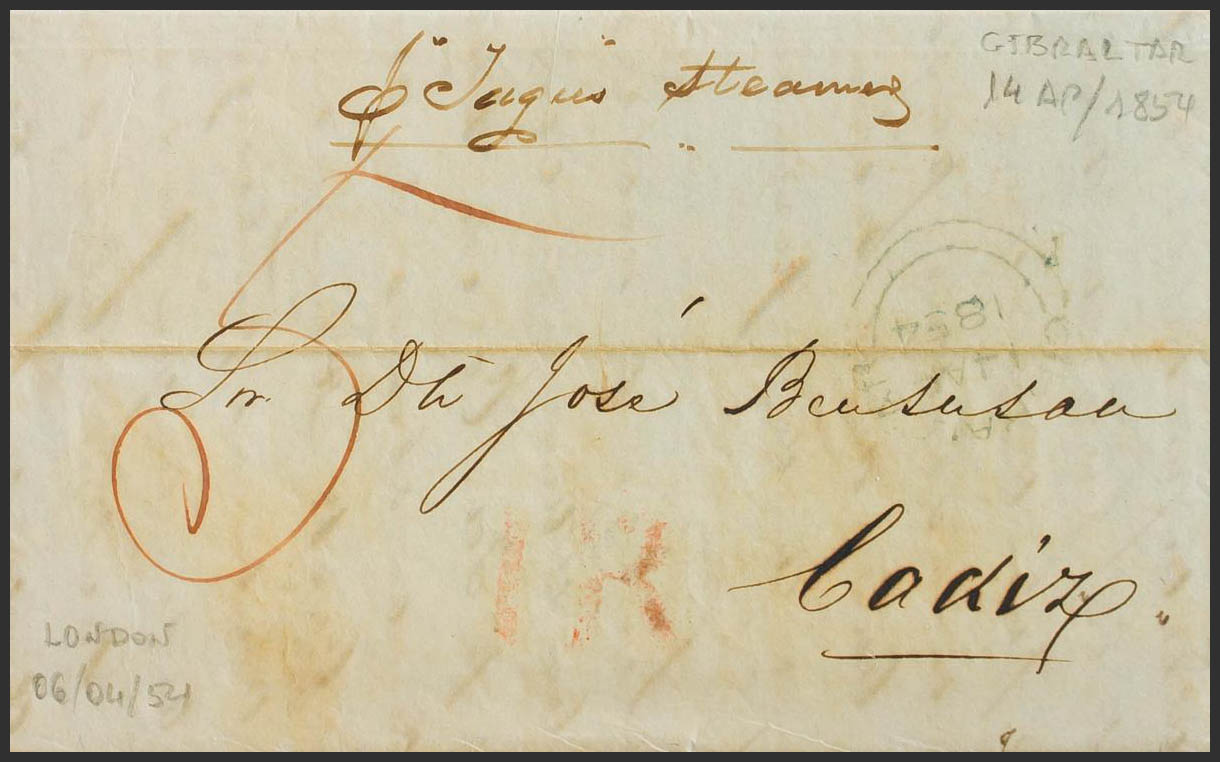 p "Tagus" Steamer
GIBRALTAR
14 AP/1854
5
1854
Sr. Dn José Bensusan
1R
Cadiz
LONDON
06/04/54